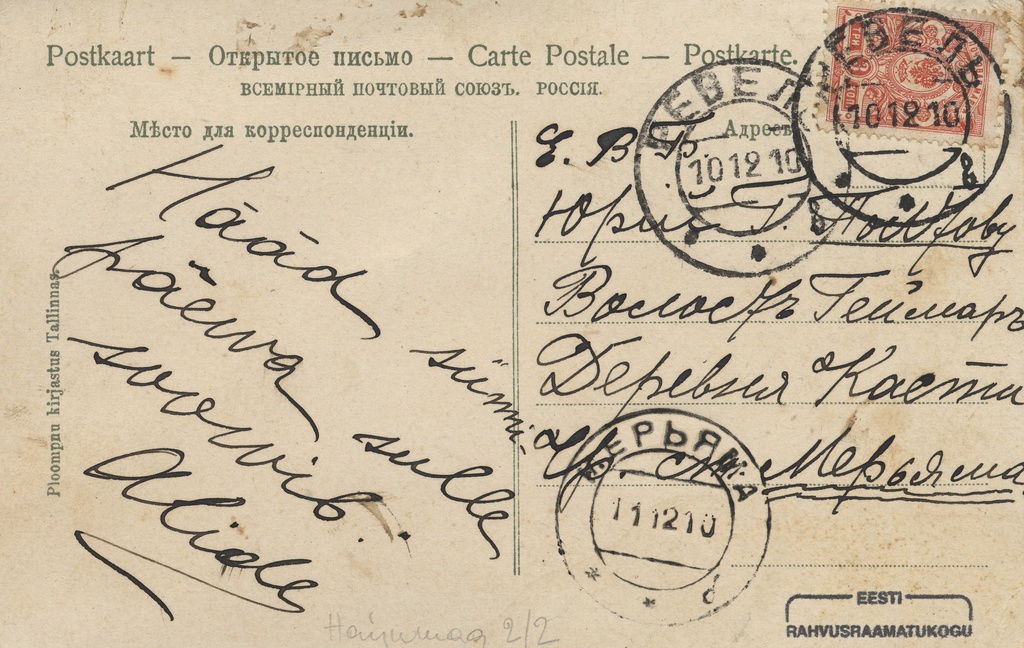 Postkaart — Открытое письмо — Carte Postale — Postkarte.
ВСЕМІРНЫЙ ПОЧТОВЫЙ СОЮЗЪ. РОССІЯ.
Мѣсто для корреспонденціи.
Адресъ
Häád
sünni
päewa
sulle
soovib.
Alide
Ploompuu kirjastus Tallinnas.
Е. В. Б.
Юрію Г.
Волость Геймаръ
Деревня Касти
Мерьяма
РЕВЕЛЬ
10 12 10
РЕВЕЛЬ
10 12 10
МЕРЬЯМА
11 12 10
2/2
EESTI
RAHVUSRAAMATUKOGU